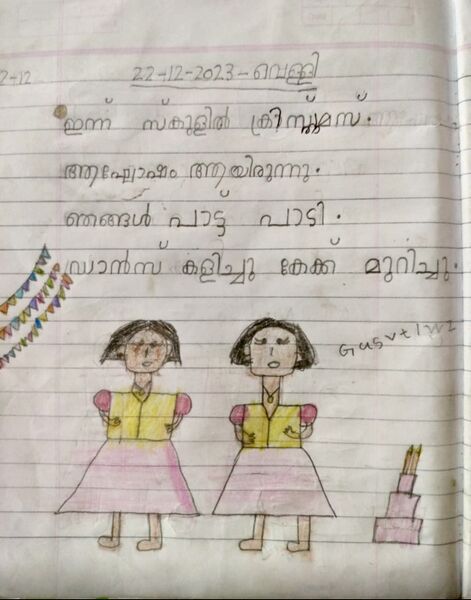 2-12
22-12-2023 - വെള്ളി
ഇന്ന് സ്കൂളിൽ ക്രിസ്തുമസ്.
ആഘോഷം ആയിരുന്നു.
ഞങ്ങൾ പാട്ട് പാടി.
ഡാൻസ് കളിച്ചു കേക്ക് മുറിച്ചു.